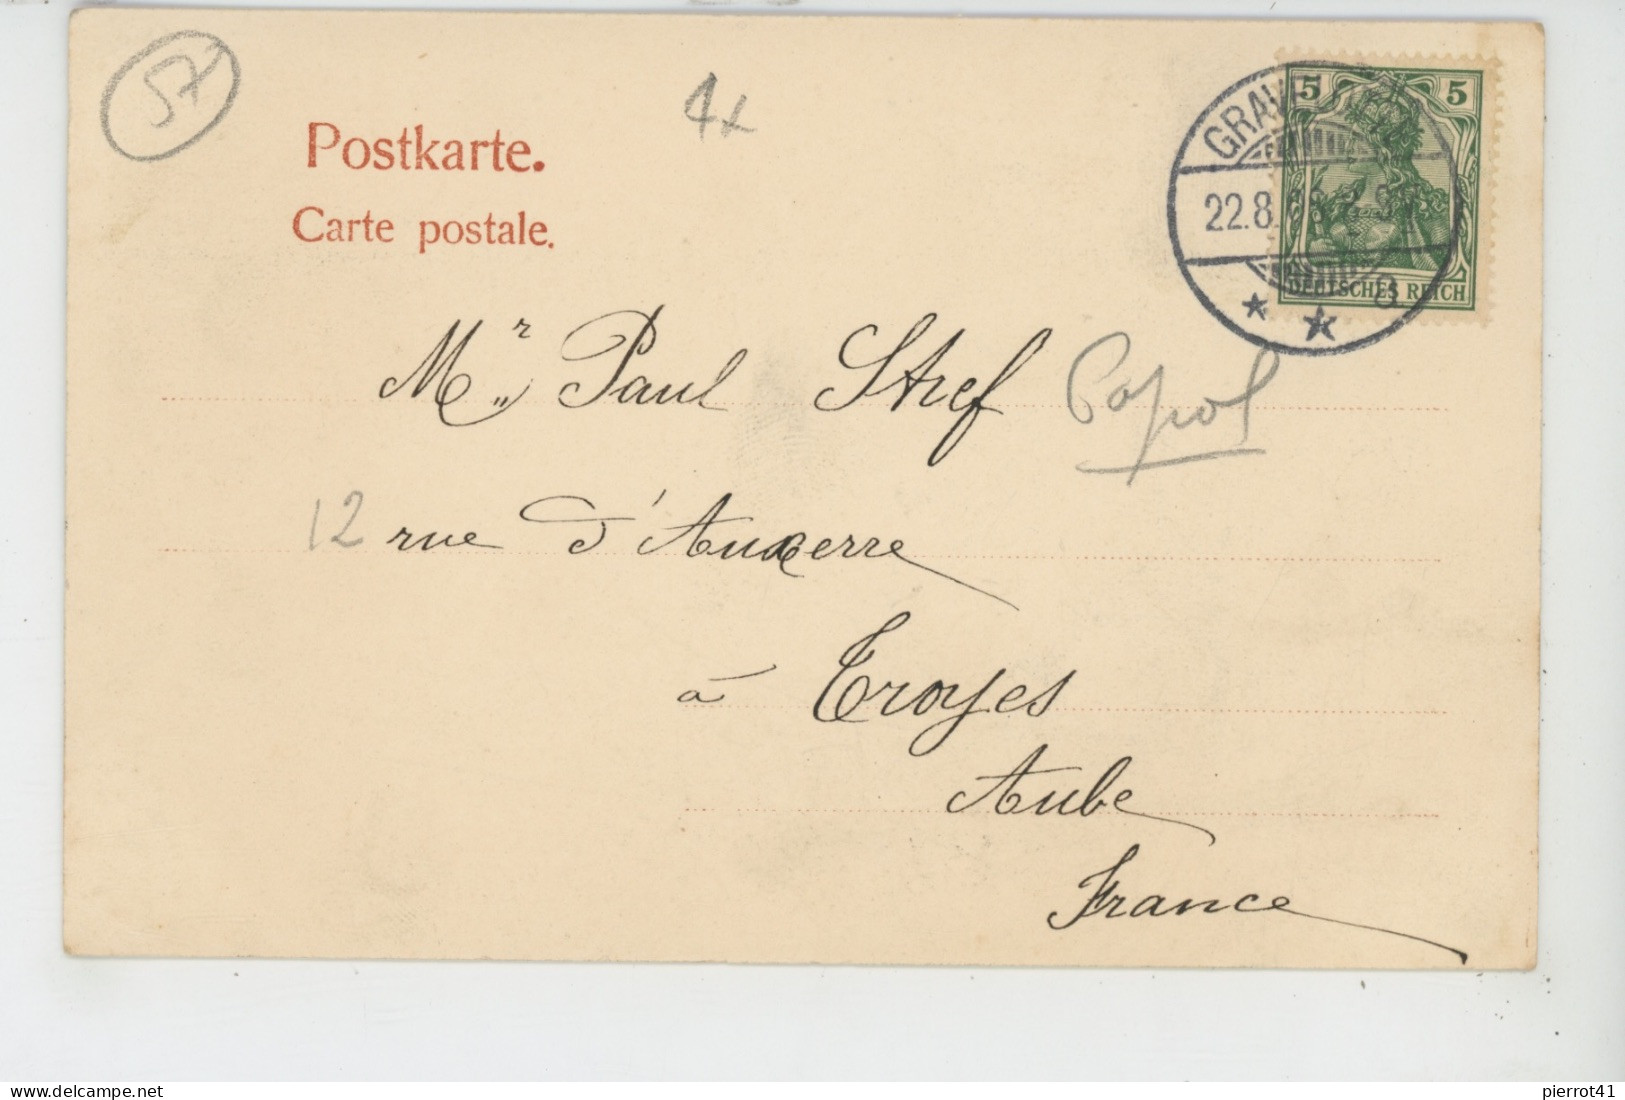 57
4x
Postkarte.
Carte postale.
5 5
22.8.
DEUTSCHES REICH
Mr Paul Stref
Papol
12 rue d'Auxerre
à Troyes
Aube
France
delcampe.net
pierrot41